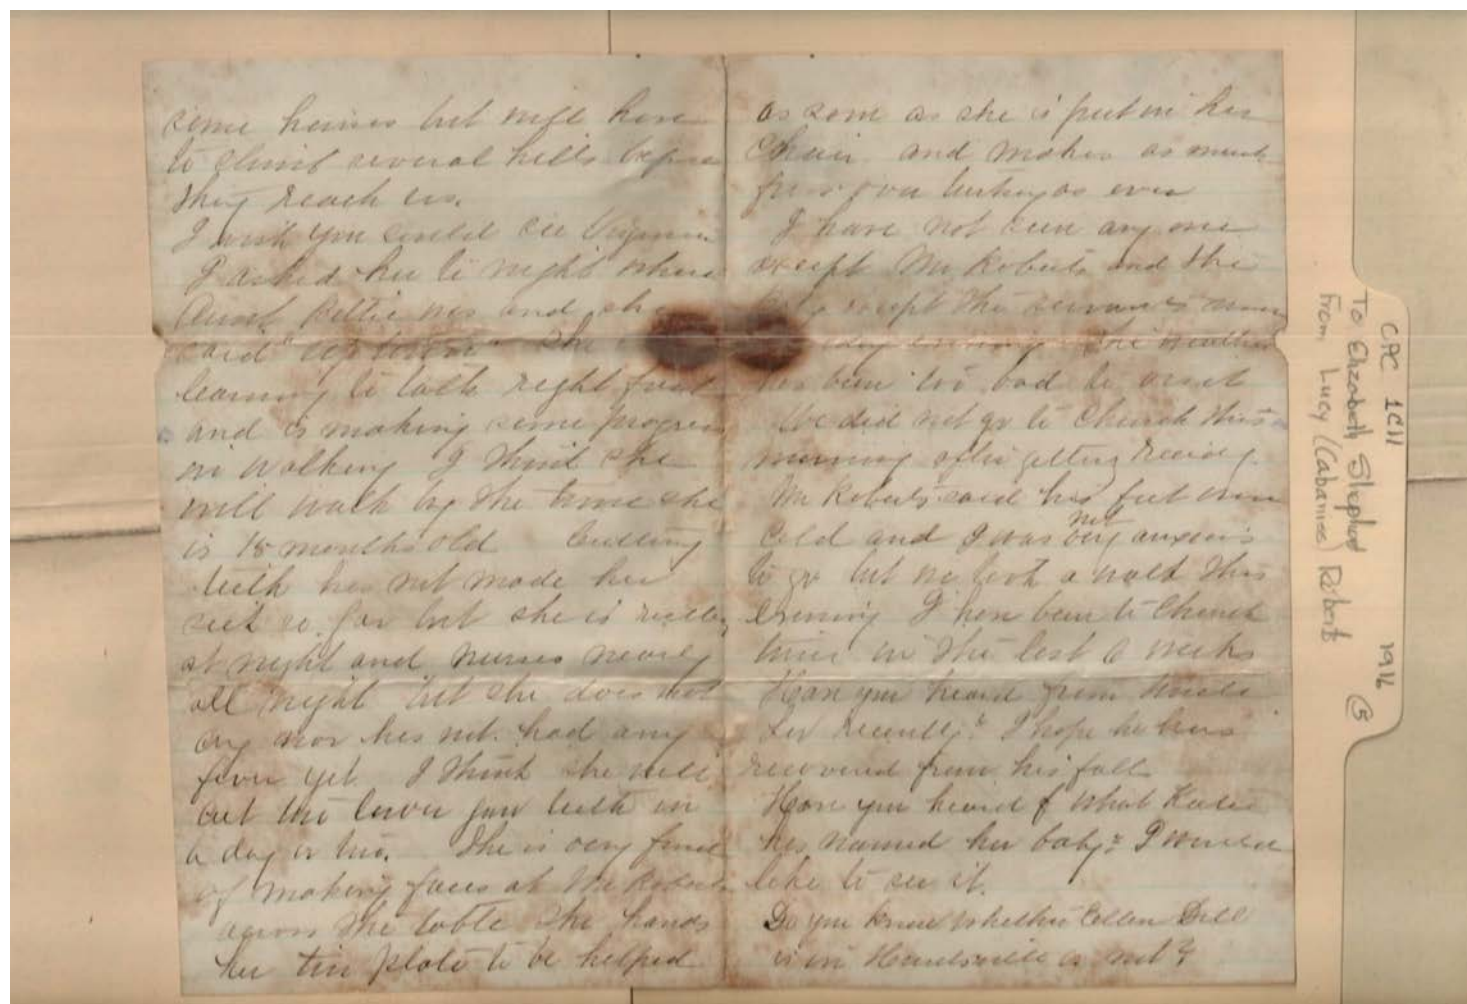 some houses but will have
to climb several hills before
they reach us.
I wish you could see Virginia
I asked her to night where
Aunt Kittie was and she
said "up town" She
learning to talk right fast
and is making some progress
in walking I think she
will walk by the time she
is 18 months old Cutting
teeth has not made her
sick so far but she is
at night and nurses nearly
all night but she does not
cry nor has not had any
fever yet I think she will
cut two lower jaw teeth in
a day or two. She is very fond
of making faces at Mr Roberts
across the table She hands
her tin plate to be helped
as soon as she is put in her
Chair and makes as much
fuss over as ever
I have not seen any one
except Mr Roberts and the
except the servants
The weather
has been too bad to visit
We did not go to Church this
morning after getting ready
Mr Roberts said his feet were
cold and I was not very anxious
to go but we took a walk this
evening I have been to Church
twice in the last 6 weeks
Have you heard from Uncle
recently? I hope he has
recovered from his fall
Have you heard what Katie
has named her baby? I would
like to see it.
Do you know whether Ellen Dill
is in Huntsville or not?
CPC 1C11 1916 (5)
To Elizabeth Shepherd
From Lucy (Cabaniss) Roberts